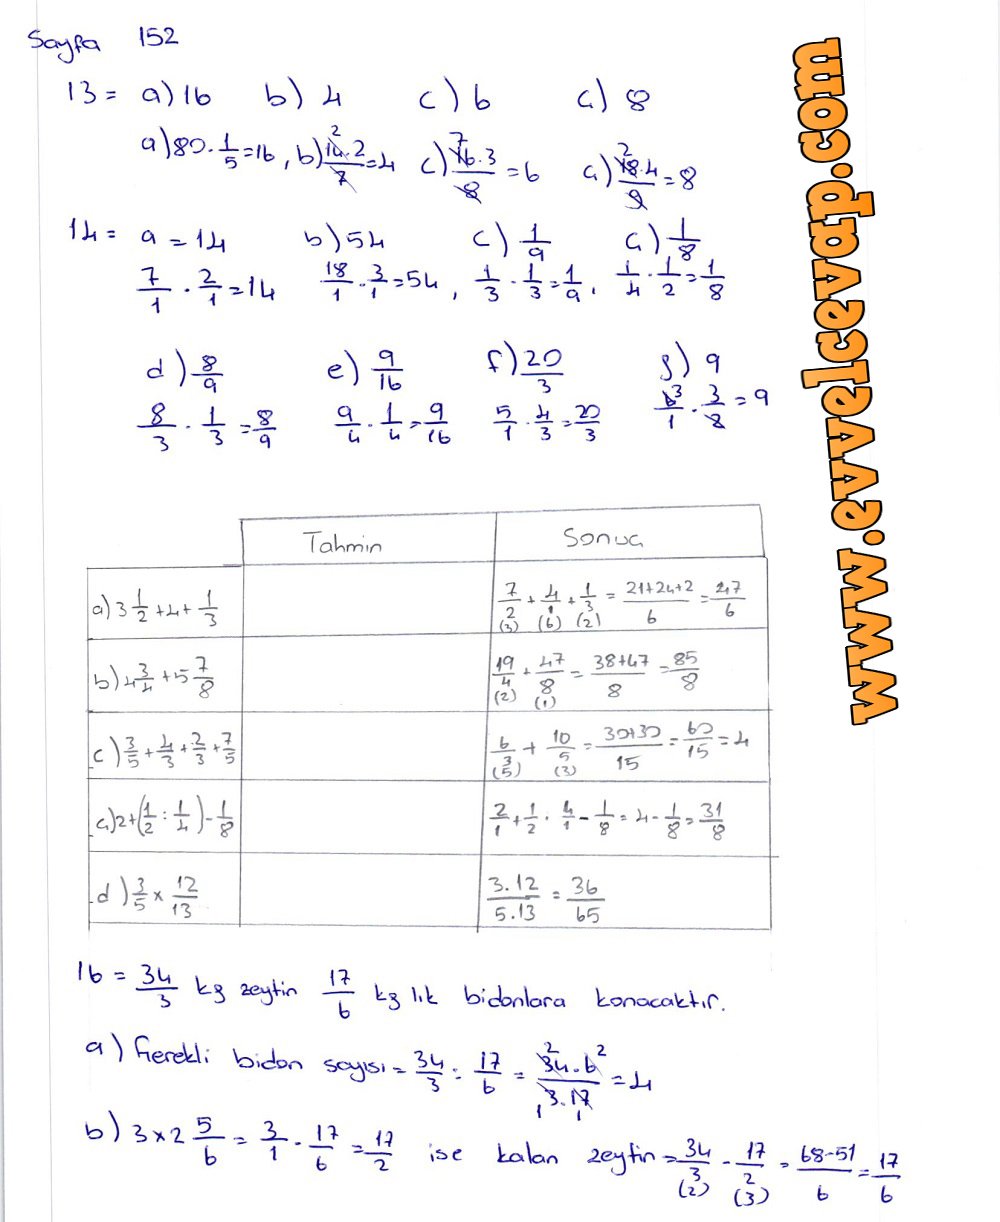 Sayfa 152
13 = a) 16 b) 4 c) 6 ç) 8
a) 80 . 1/5 = 16 , b) 14.2/7 = 4 (2) c) 16.3/8 = 6 (7) ç) 18.4/9 = 8 (2)
14 = a = 14 b) 54 c) 1/9 ç) 1/8
7/1 . 2/1 = 14 18/1 . 3/1 = 54 , 1/3 . 1/3 = 1/9 , 1/4 . 1/2 = 1/8
d) 8/9 e) 9/16 f) 20/3 g) 9
8/3 . 1/3 = 8/9 9/4 . 1/4 = 9/16 5/1 . 4/3 = 20/3 6/1 . 3/2 = 9 (3)
Tahmin Sonuç
a) 3 1/2 + 4 + 1/3 7/2 (3) + 4/1 (6) + 1/3 (2) = 21+24+2/6 = 47/6
b) 4 3/4 + 5 7/8 19/4 (2) + 47/8 (1) = 38+47/8 = 85/8
c) 3/5 + 4/3 + 2/3 + 7/5 6/3 (5) + 10/5 (3) = 30+30/15 = 60/15 = 4
ç) 2 + (1/2 : 1/4) - 1/8 2/1 + 1/2 . 4/1 - 1/8 = 4 - 1/8 = 31/8
d) 3/5 x 12/13 3.12/5.13 = 36/65
16 = 34/3 kg zeytin 17/6 kg lık bidonlara konacaktır.
a) Gerekli bidon sayısı = 34/3 : 17/6 = 34.6/3.17 = 4
b) 3 x 2 5/6 = 3/1 . 17/6 = 17/2 ise kalan zeytin = 34/3 (2) - 17/2 (3) = 68-51/6 = 17/6
www.evvelcevap.com